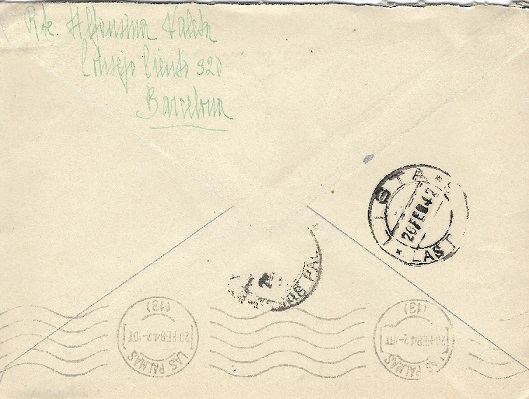 Rte. Alfonsina Valeta
Consejo Ciento 320
Barcelona
ISTA
20 FEB 42
* LAS
DE PA
LAS PALMAS
20 FEB 42
(13)
LAS PALMAS
20 FEB 42
(13)